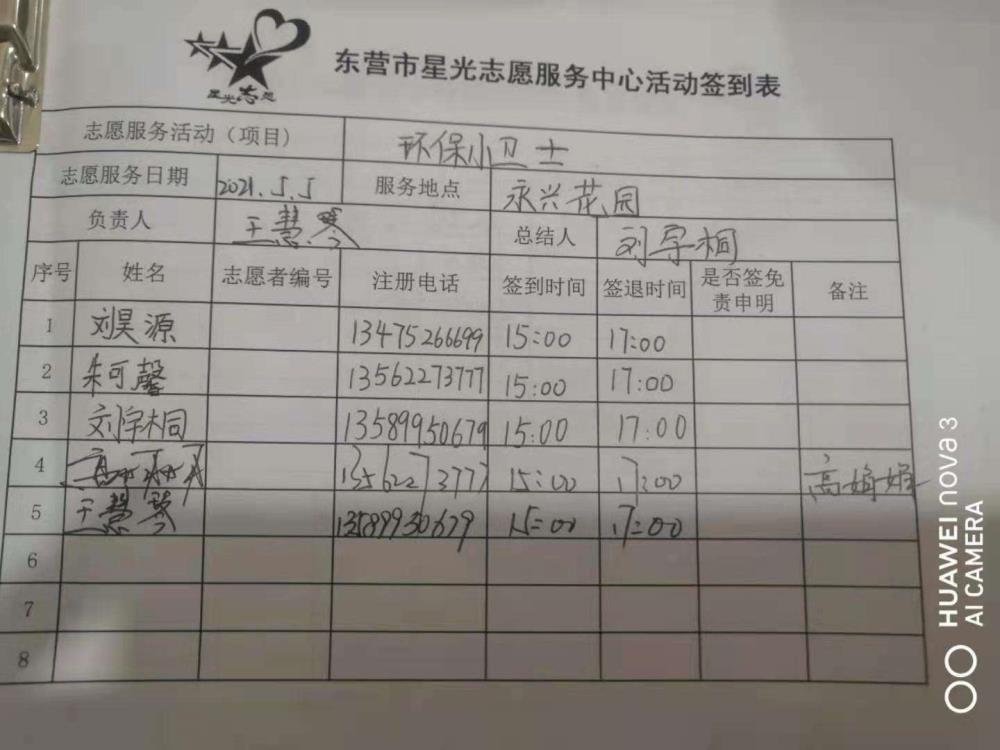 星光志愿
东营市星光志愿服务中心活动签到表
志愿服务活动（项目） 环保小卫士
志愿服务日期 2021.5.5 服务地点 永兴花园
负责人 王慧琴 总结人 刘宇桐
序号 姓名 志愿者编号 注册电话 签到时间 签退时间 是否签免责申明 备注
1 刘昊源 13475266699 15:00 17:00
2 朱可馨 13562273777 15:00 17:00
3 刘宇桐 13589950679 15:00 17:00
4 13562273777 15:00 17:00 高娟娟
5 王慧琴 13589950679 15:00 17:00
6
7
8
HUAWEI nova 3
AI CAMERA